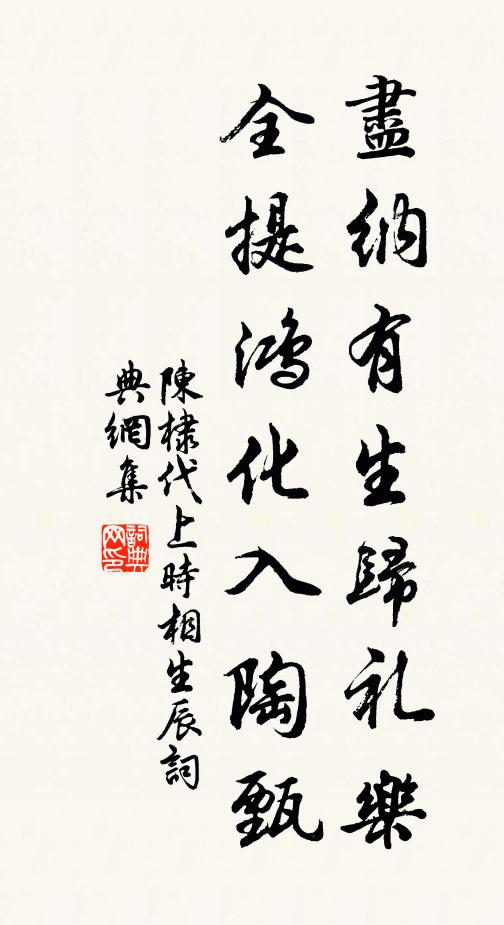 盡納有生歸礼樂
全提鴻化入陶甄
陳棣代上時相生辰詞
典網集
詞典网印